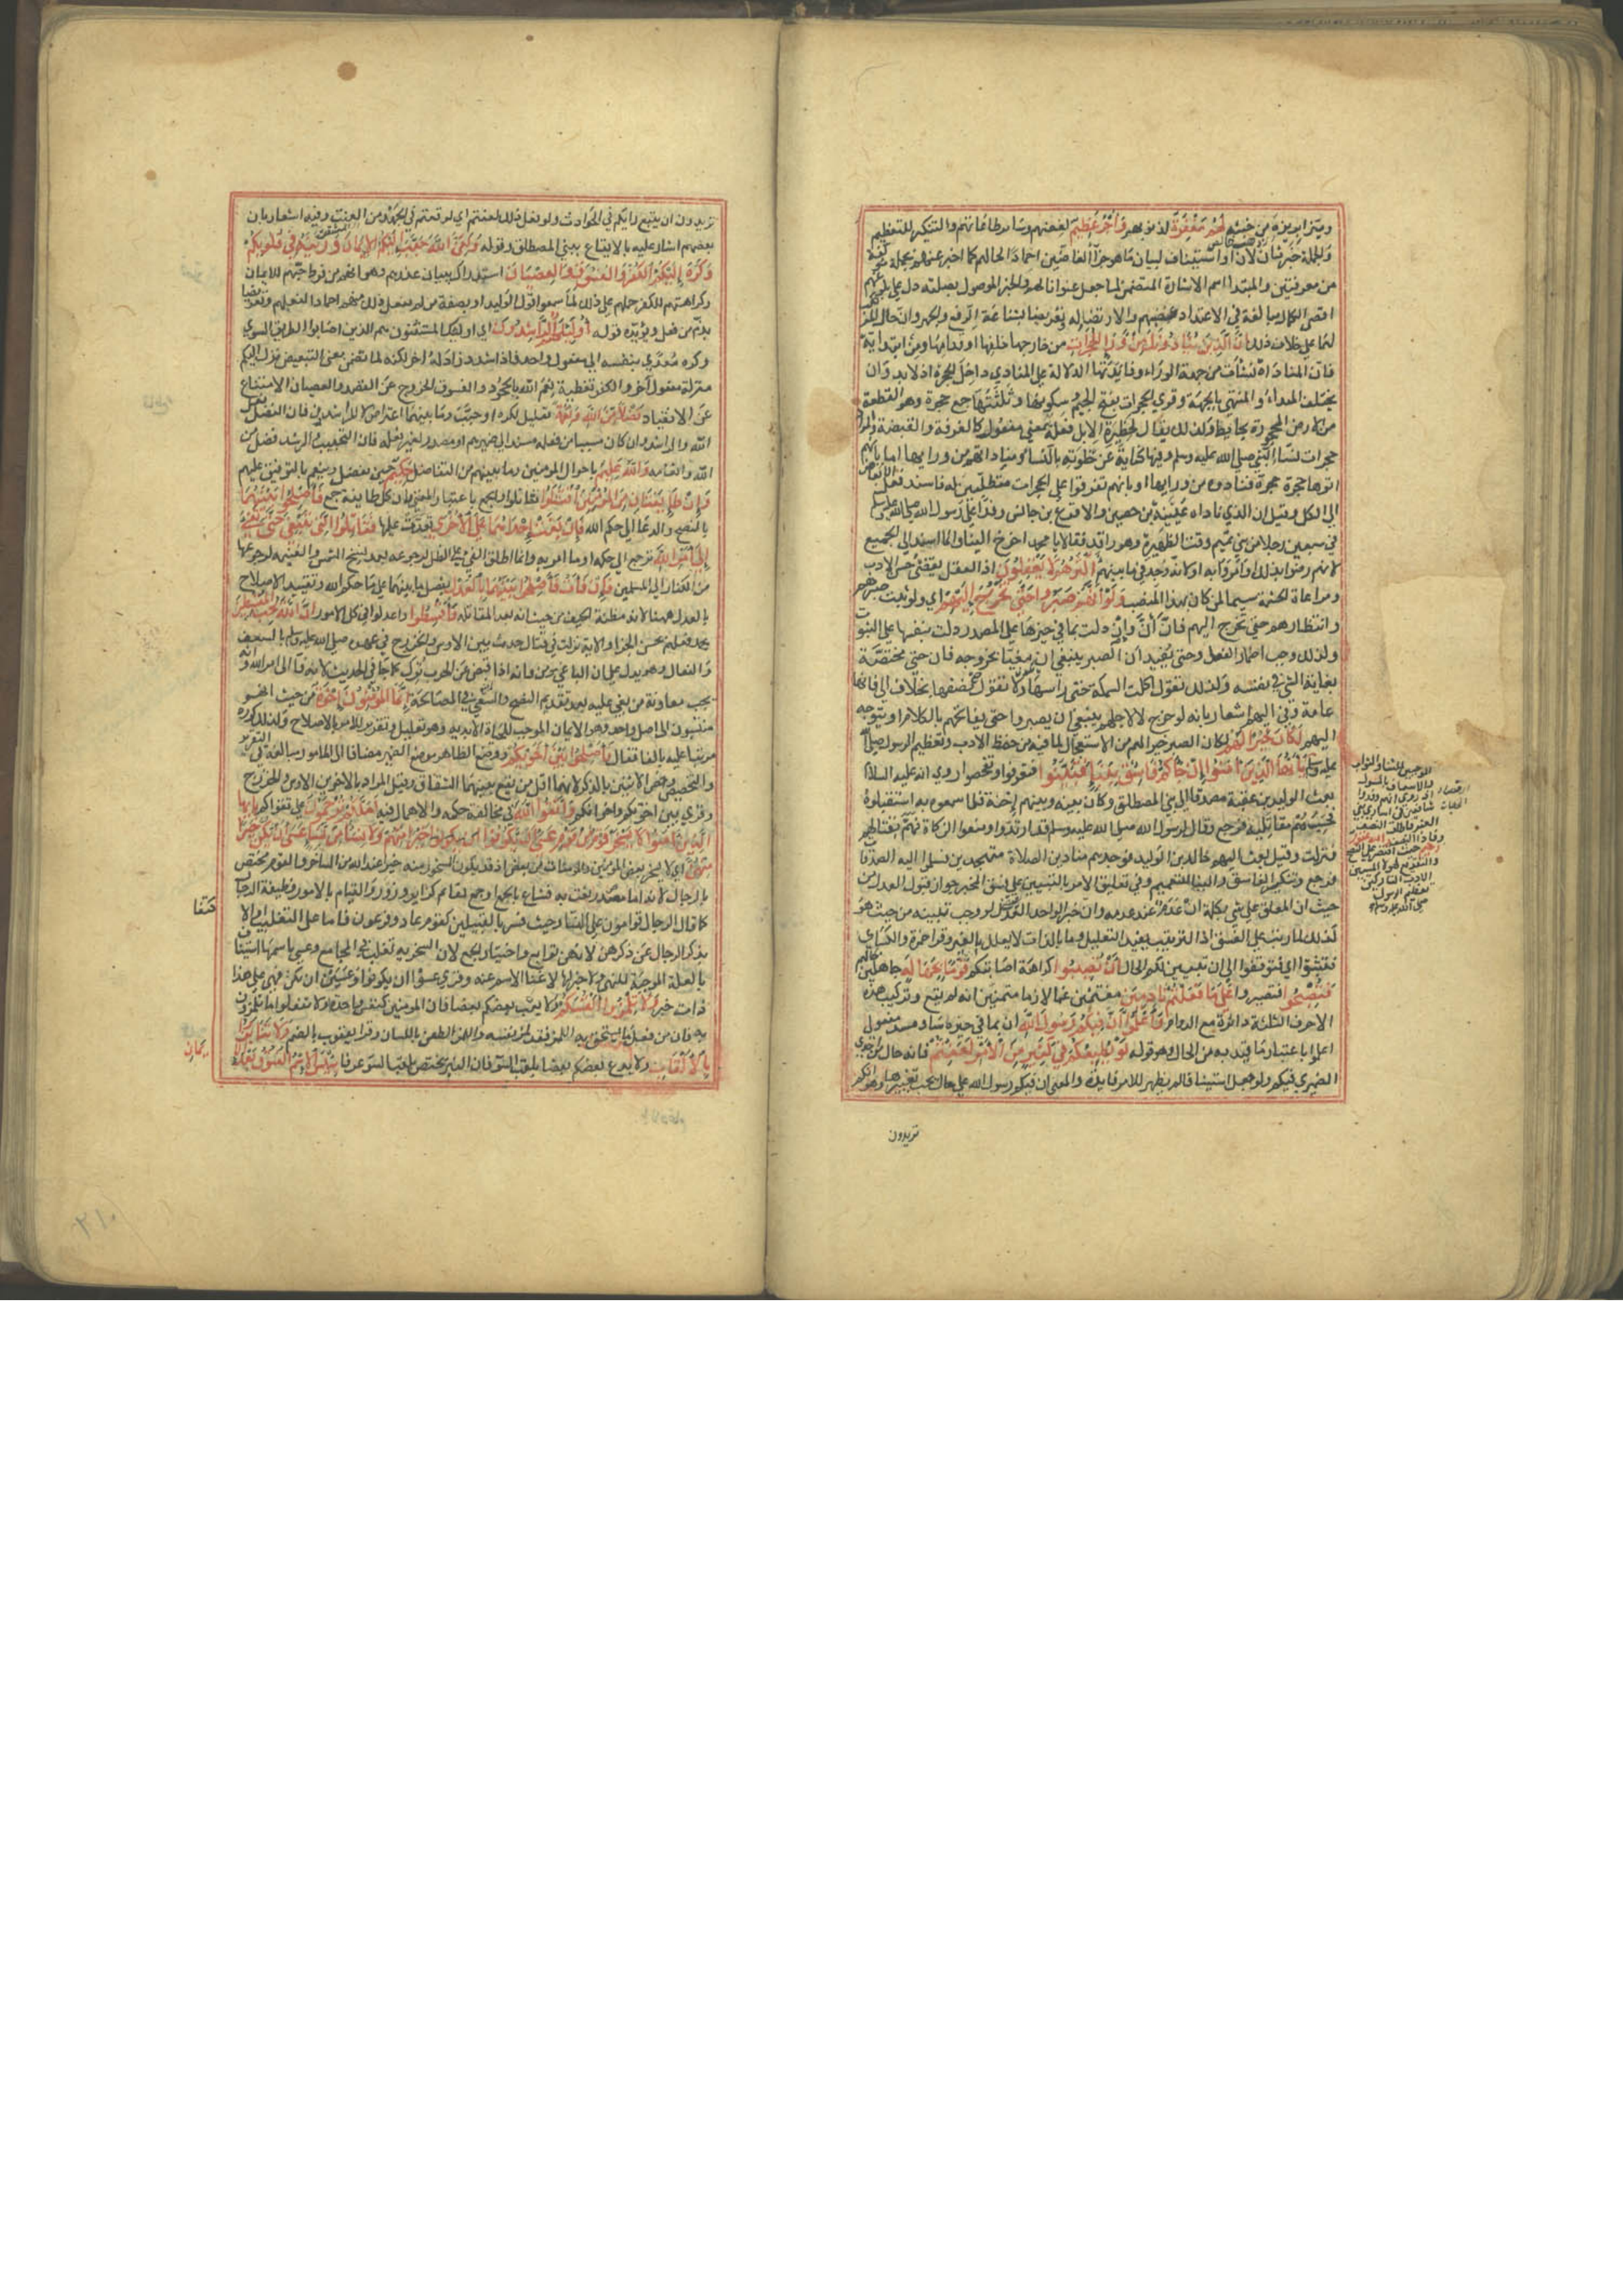 ويتنزا بريزه من خبثه لَهُمْ مَغْفِرَةٌ لذنوبهم وَأَجْرٌ عَظِيمٌ لغضهم وسائر طاعاتهم والتنكير للتعظيم
والجملة خبر ثان لان او استيناف لبيان ما هو جزآ الغاضين احمادا لحالهم كما اخبر عنهم بجملة مؤلفة
من معرفتين والمبتدا اسم الاشارة المتضمن لما جعل عنوانا لهم والخبر الموصول بصلته دل على بلوغهم
اقصى الكمال مبالغة في الاعتداد بغضهم والارتضا له وتعريضا بشناعة الرفع والجهر وان حال المرتكب
لهما على خلاف ذلك اِنَّ الَّذِينَ يُنَادُونَكَ مِنْ وَرَاءِ الْحُجُرَاتِ من خارجها خلفها او قدامها ومن ابتدائية
فان المناداة نشأت من جهة الوراء وفايدتها الدلالة على المنادي داخل الحجرة اذ لا بد وان
يختلف المبداء والمنتهى بالجهة وقري الحجرات بفتح الجيم وسكونها وثلثتها جمع حجرة وهو القطعة
من الارض المحجورة بحايط ولذلك يقال لحظيرة الابل فعلة بمعنى مفعول كالغرفة والقبضة والمراد
حجرات نساء النبي صلى الله عليه وسلم وفيها كناية عن خلوته بالنساء ومناداتهم من ورايها اما بانهم
اتوها حجرة حجرة فنادوه من ورايها او بانهم تفرقوا على الحجرات متطلبين له فاسند فعل الابعاض
الى الكل وقيل ان الذي ناداه عيينة بن حصين والاقرع بن حابس وفدا على رسول الله صلى الله عليه وسلم
في سبعين رجلا من بني تميم وقت الظهيرة وهو راقد فقالا يا محمد اخرج الينا وانما اسند الى الجميع
لانهم رضوا بذلك او امروا به او لانه وجد فيما بينهم أَكْثَرُهُمْ لَا يَعْقِلُونَ اذ العقل يقتضى حسن الادب
ومراعاة الحشمة سيما لمن كان بهذا المنصب وَلَوْ أَنَّهُمْ صَبَرُوا حَتَّى تَخْرُجَ إِلَيْهِمْ اي ولو ثبت صبرهم
وانتظارهم حتى تخرج اليهم فان أَنَّ وان دلت بما في حيزها على المصدر دلت بنفسها على الثبوت
ولذلك وجب اضمار الفعل وحتى يفيد ان الصبر ينبغي ان يكون مغيا بخروجه فان حتى مختصة
بغاية الشي في نفسه ولذلك تقول اكلت السمكة حتى راسها ولا تقول حتى نصفها بخلاف الى فانها
عامة وفي اليهم اشعار بانه لو خرج لا لاجلهم ينبغي ان يصبروا حتى يفاتحهم بالكلام او يتوجه
اليهم لَكَانَ خَيْرًا لَهُمْ لكان الصبر خيرا لهم من الاستعجال لما فيه من حفظ الادب وتعظيم الرسول صلى الله
عليه وسلم يَاأَيُّهَا الَّذِينَ آمَنُوا إِنْ جَاءَكُمْ فَاسِقٌ بِنَبَإٍ فَتَبَيَّنُوا فتعرفوا وتفحصوا روي انه عليه السلام
بعث الوليد بن عقبة مصدقا الى بني المصطلق وكان بينه وبينهم إحنة فلما سمعوه به استقبلوه
فحسبهم مقاتليه فرجع وقال لرسول الله صلى الله عليه وسلم قد ارتدوا ومنعوا الزكاة فهم بقتالهم
فنزلت وقيل بعث اليهم خالد بن الوليد فوجدهم منادين الصلاة متهجدين فسلموا اليه الصدقات
فرجع وتنكير الفاسق والنبا للتعميم وفي تعليق الامر بالتبيين على فسق المخبر جواز قبول العدل من
حيث ان المعلق على شي بكلمة ان عدم عند عدمه وان خبر الواحد العدل لو وجب تبينه من حيث هو
كذلك لما رتب على الفسق اذ الترتيب يفيد التعليل وما بالذات لا يعلل بالغير وقرا حمزة والكسائي
فتثبتوا اي فتوقفوا الى ان تتبين لكم الحال أَنْ تُصِيبُوا كراهة اصابتكم قَوْمًا بِجَهَالَةٍ جاهلين بحالهم
فَتُصْبِحُوا فتصيروا عَلَى مَا فَعَلْتُمْ نَادِمِينَ مغتمين غما لازما متمنين انه لم يقع وتركيب هذه
الاحرف الثلثة دائرة مع الدوام وَاعْلَمُوا أَنَّ فِيكُمْ رَسُولَ اللَّهِ ان بما في حيزه ساد مسد مفعول
اعلموا باعتبار ما قيد به من الحال وهو قوله لَوْ يُطِيعُكُمْ فِي كَثِيرٍ مِنَ الْأَمْرِ لَعَنِتُّمْ فانه حال من احدى
الضميري فيكم ولو جعل استينافا لم يظهر للامر فايدة والمعنى ان فيكم رسول الله على حال يجب تغييرها وهو انكم
تريدون
تريدون ان يتبع رايكم في الحوادث ولو فعل ذلك لعنتم اي لوقعتم في الجهد ومن العنت وفيه اشعار بان
بعضهم اشار عليه بالايقاع ببني المصطلق وقوله وَلَكِنَّ اللَّهَ حَبَّبَ إِلَيْكُمُ الْإِيمَانَ وَزَيَّنَهُ فِي قُلُوبِكُمْ
وَكَرَّهَ إِلَيْكُمُ الْكُفْرَ وَالْفُسُوقَ وَالْعِصْيَانَ استدراك ببيان عذرهم وهو انهم من فرط حبهم للايمان
وكراهتهم للكفر حملهم على ذلك لما سمعوا قول الوليد او بصفة من لم يفعل ذلك منهم احمادا لفعلهم وتعريضا
بذم من فعل ويؤيده قوله أُولَئِكَ هُمُ الرَّاشِدُونَ اي اوليك المستثنون هم الذين اصابوا الطريق السوي
وكره متعدي بنفسه الى مفعول واحد فاذا شدد زاد له اخر لكنه لما تضمن معنى التبعيض نزل اليكم
منزلة مفعول آخر والكفر تغطية نعم الله بالجحود والفسوق الخروج عن القصد والعصيان الامتناع
عن الانقياد فَضْلًا مِنَ اللَّهِ وَنِعْمَةً تعليل لكره او حبب وما بينهما اعتراض لا للراشدين فان الفضل فعل
الله والرشد وان كان مسببا من فعله مسند الى ضميرهم او مصدر لغير فعله فان التحبيب والرشد فضل من
الله وانعام وَاللَّهُ عَلِيمٌ باحوال المومنين وما بينهم من التفاضل حَكِيمٌ حين يفضل وينعم بالتوفيق عليهم
وَإِنْ طَائِفَتَانِ مِنَ الْمُؤْمِنِينَ اقْتَتَلُوا تقاتلوا والجمع باعتبار المعنى فان كل طايفة جمع فَأَصْلِحُوا بَيْنَهُمَا
بالنصح والدعا الى حكم الله فَإِنْ بَغَتْ إِحْدَاهُمَا عَلَى الْأُخْرَى تعدت عليها فَقَاتِلُوا الَّتِي تَبْغِي حَتَّى تَفِيءَ
إِلَى أَمْرِ اللَّهِ ترجع الى حكمه او ما امر به وانما اطلق الفيء على الظل لرجوعه بعد نسخ الشمس والغنيمة لرجوعها
من الكفار الى المسلمين فَإِنْ فَاءَتْ فَأَصْلِحُوا بَيْنَهُمَا بِالْعَدْلِ بفصل ما بينهما على ما حكم الله وتقييد الاصلاح
بالعدل ههنا لانه مظنة الحيف من حيث انه بعد المقاتلة وَأَقْسِطُوا واعدلوا في كل الامور إِنَّ اللَّهَ يُحِبُّ الْمُقْسِطِينَ
يحمد فعلهم بحسن الجزا والاية نزلت في قتال حدث بين الاوس والخزرج في عهده صلى الله عليه وسلم بالسعف
والنعال وهو يدل على ان الباغي مومن وانه اذا قبض عن الحرب ترك كما جا في الحديث لانه فآ الى امر الله وانه
يجب معاونة من بغي عليه بعد تقديم النصح والسعي في المصالحة إِنَّمَا الْمُؤْمِنُونَ إِخْوَةٌ من حيث انهم
منتسبون الى اصل واحد وهو الايمان الموجب للحياة الابدية وهو تعليل وتقرير للامر بالاصلاح ولذلك كرره
مرتبا عليه بالفا فقال فَأَصْلِحُوا بَيْنَ أَخَوَيْكُمْ ووضع الظاهر موضع الضمير مضافا الى المامور مبالغة في التقرير
والتحضيض وخص الاثنين بالذكر لانهما اقل من يقع بينهما الشقاق وقيل المراد بالاخوين الاوس والخزرج
وقري بين اخوتكم واخوانكم وَاتَّقُوا اللَّهَ في مخالفة حكمه والاهمال فيه لَعَلَّكُمْ تُرْحَمُونَ على تقواكم يَاأَيُّهَا
الَّذِينَ آمَنُوا لَا يَسْخَرْ قَوْمٌ مِنْ قَوْمٍ عَسَى أَنْ يَكُونُوا خَيْرًا مِنْهُمْ وَلَا نِسَاءٌ مِنْ نِسَاءٍ عَسَى أَنْ يَكُنَّ خَيْرًا
مِنْهُنَّ اي لا يسخر بعض المومنين والمومنات من بعض اذ قد يكون المسخور منه خيرا عند الله من الساخر والقوم مختص
بالرجال لانه اما مصدر نعت به فشاع بالجمع او جمع لقائم كزاير وزور والقيام بالامور وظيفة الرجال
كما قال الرجال قوامون على النسا وحيث فسر بالقبيلين كقوم عاد وفرعون فاما على التغليب او الاكتفا
بذكر الرجال عن ذكرهن لانهن توابع واختيار الجمع لان السخرية تغلب في المجامع وعسى باسمها استيناف
بالعلة الموجبة للنهي ولا خبر لها لاغنا الاسم عنه وقري عسوا ان يكونوا وعسين ان يكن فهي على هذا
ذات خبر وَلَا تَلْمِزُوا أَنْفُسَكُمْ ولا يعب بعضكم بعضا فان المومنين كنفس واحدة ولا تفعلوا ما تلمزون
به فان من فعل ما استحق به اللمز فقد لمز نفسه واللمز الطعن باللسان وقرا يعقوب بالضم وَلَا تَنَابَزُوا
بِالْأَلْقَابِ ولا يدع بعضكم بعضا بلقب السوء فان النبز مختص بلقب السوء عرفا بِئْسَ الِاسْمُ الْفُسُوقُ بَعْدَ